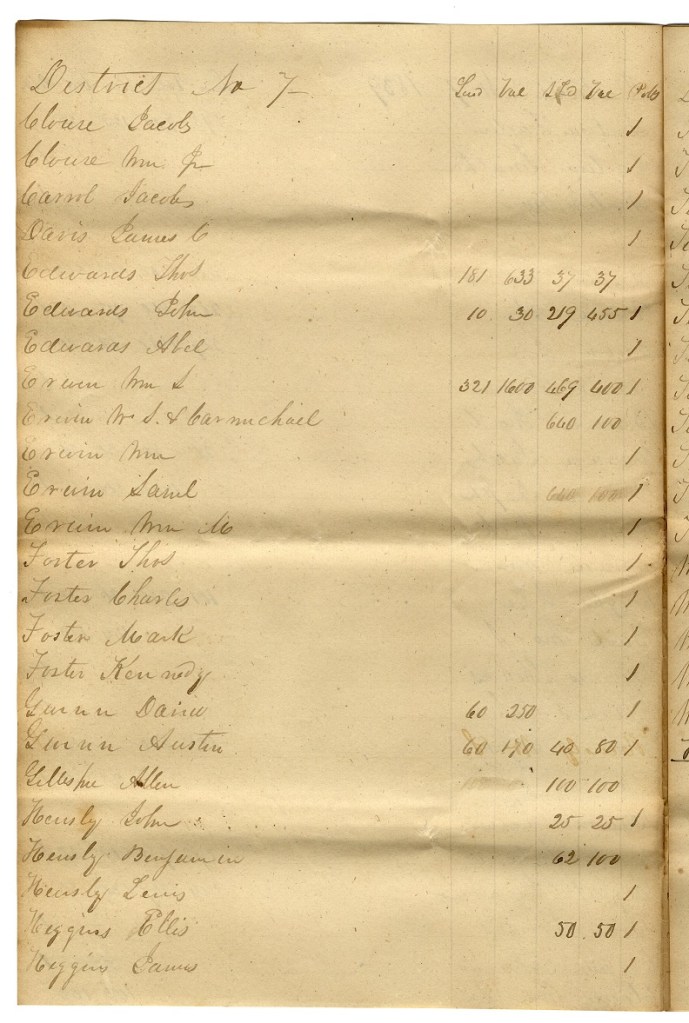 District No 7 Land Val S Ld Val Polls
Clouse Jacob 1
Clouse Wm Jr 1
Carrol Jacob 1
Davis James C 1
Edwards Thos 181 633 37 37
Edwards John 10 30 219 455 1
Edwards Abel 1
Erwin Wm S 321 1600 469 400 1
Erwin W. S. & Carmichael 640 100
Erwin Wm 1
Erwin Saml 640 100 1
Erwin Wm M 1
Forster Thos 1
Foster Charles 1
Foster Mark 1
Foster Kennedy 1
Gwinn 60 250 1
Gwinn Austin 60 170 40 80 1
Gillespie Allen 100 100
Hensly John 25 25 1
Hensly Benjamin 62 100
Hensly Lewis 1
Higgins Ellis 50 50 1
Higgins James 1